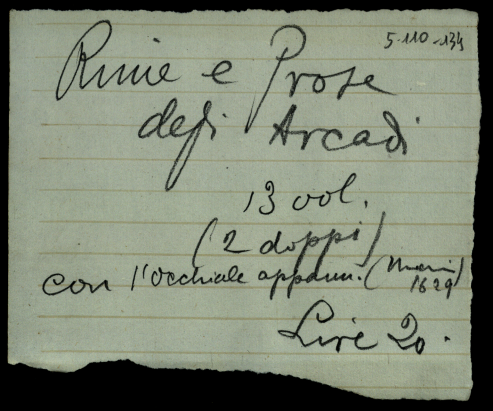 5-110-134
Rime e Prose
degli Arcadi
13 vol.
(2 doppi)
con l'occhiale appann. (
1629)
Lire 20.